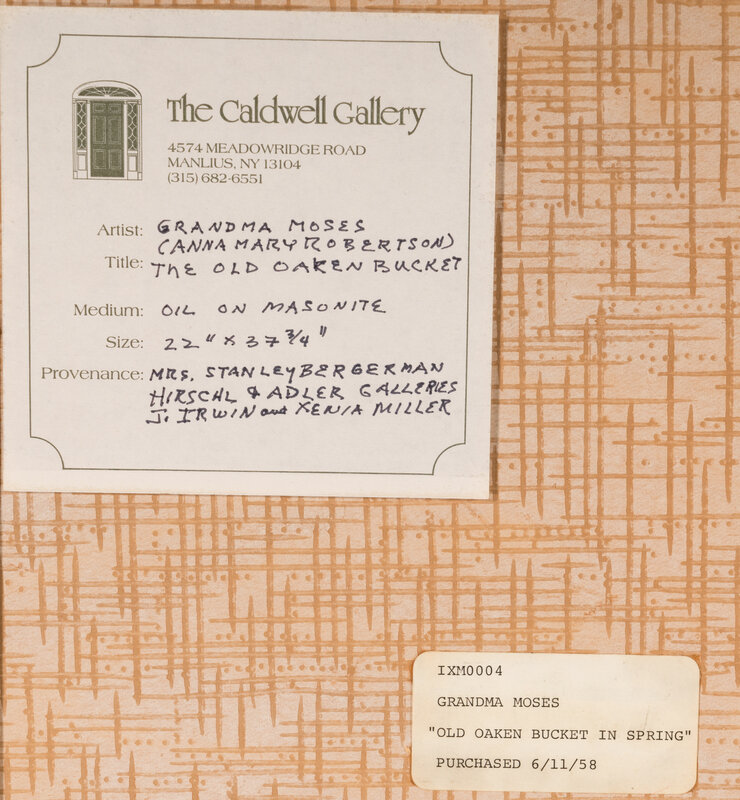 The Caldwell Gallery
4574 MEADOWRIDGE ROAD
MANLIUS, NY 13104
(315) 682-6551
Artist: GRANDMA MOSES
(ANNA MARY ROBERTSON)
Title: THE OLD OAKEN BUCKET
Medium: OIL ON MASONITE
Size: 22" x 37 3/4"
Provenance: MRS. STANLEY BERGERMAN
HIRSCHL & ADLER GALLERIES
J. IRWIN and XENIA MILLER
IXM0004
GRANDMA MOSES
"OLD OAKEN BUCKET IN SPRING"
PURCHASED 6/11/58